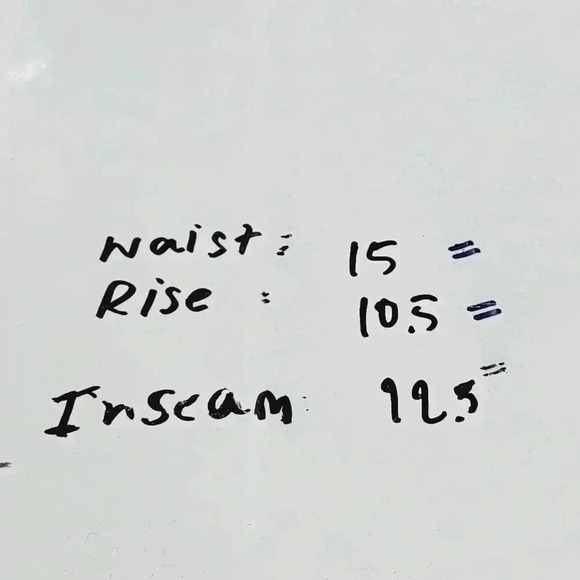 Waist: 15 =
Rise : 10.5 =
Inseam: 12.5 =